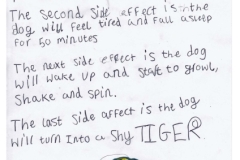 The second side effect is the
dog will feel tired and fall asleep
for 50 minutes
The next side effect is the dog
will wake up and start to growl,
shake and spin.
The last side affect is the dog
will turn into a shy TIGER